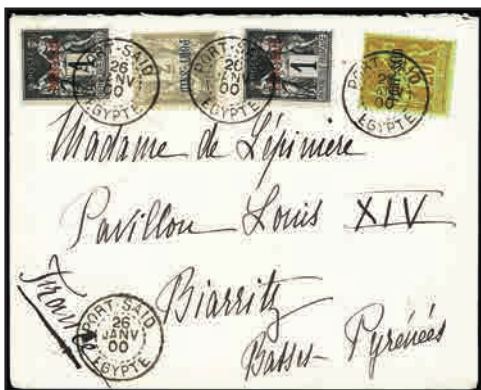 PORT-SAID
26
JANV
00
EGYPTE
PORT-SAID
26
JANV
00
EGYPTE
PORT-SAID
26
JANV
00
EGYPTE
1
PORT-SAID
1
Madame de Lépinière
Pavillon Louis XIV
Biarritz
Basses-Pyrénées
France
PORT-SAID
26
JANV
00
EGYPTE